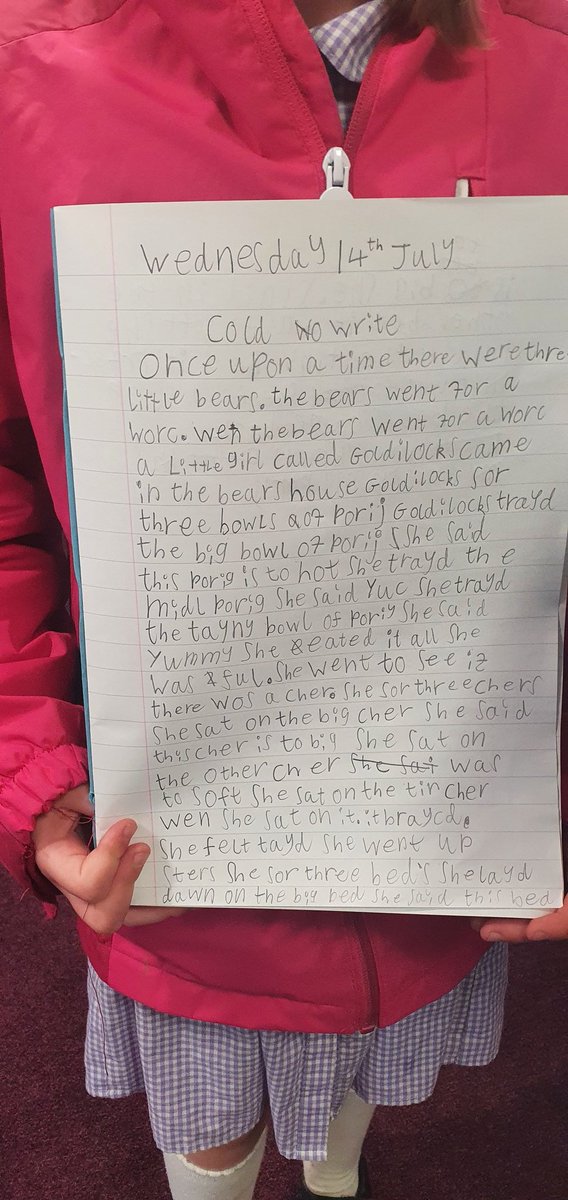 Wednesday 14th July
Cold wo write
Once upon a time there were thre
little bears. the bears went for a
worc. wen the bears went for a worc
a Little girl called Goldilocks came
in the bears house Goldilocks sor
three bowls of porij Goldilocks trayd
the big bowl of porij she said
this porig is to hot she trayd the
midl porig she said Yuc she trayd
the tayny bowl of poriy she said
Yummy she eated it all she
was ful. she went to see iz
there was a cher. she sor three chers
she sat on the big cher she said
this cher is to big she sat on
the other cher she sai was
to soft she sat on the tin cher
wen she sat on it. it braycd.
she felt tayd she went up
sters she sor three bed's she layd
dawn on the big bed she said this bed